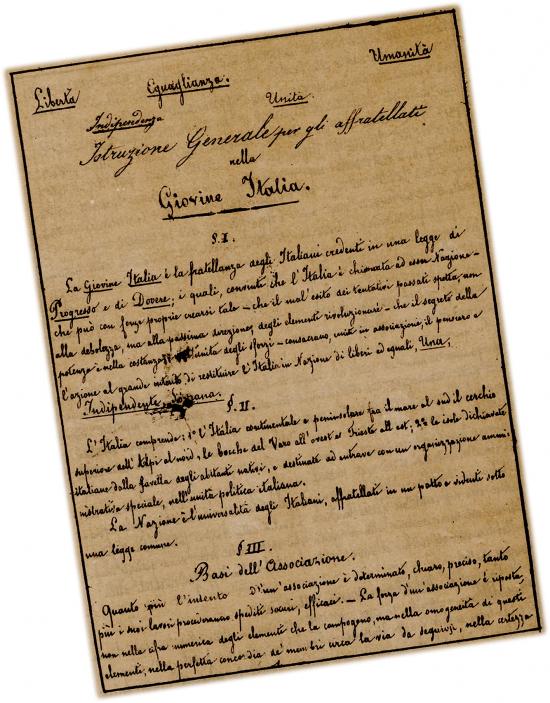 Libertà Eguaglianza. Umanità
Indipendenza Unità.
Istruzione Generale per gli affratellati
nella
Giovine Italia.
§. I.
La Giovine Italia è la fratellanza degli Italiani credenti in una legge di
Progresso e di Dovere; i quali, convinti che l'Italia è chiamata ad esser Nazione –
che può con forze proprie crearsi tale – che il mal'esito dei tentativi passati spetta, non
alla debolezza, ma alla pessima direzione degli elementi rivoluzionari – che il segreto della
potenza è nella costanza e unità degli sforzi – consacrano, uniti in associazione, il pensiero e
l'azione al grande intento di restituire l'Italia in Nazione di liberi ed eguali, Una,
Indipendente
§. II.
L'Italia comprende: 1º l'Italia continentale e peninsolare fra il mare al sud il cerchio
superiore dell'Alpi al nord, le bocche del Varo all'ovest e Trieste all'est; 2º le isole dichiarate
italiane dalla favella degli abitanti nativi, e destinate ad entrare con un organizzazione ammi-
nistrativa speciale, nell'unità politica italiana.
La Nazione è l'universalità degli Italiani, affratellati in un patto e viventi sotto
una legge comune.
§ III
Basi dell'Associazione.
Quanto più l'intento d'un'associazione è determinato, chiaro, preciso, tanto
più i suoi lavori procederanno spediti sicuri, efficaci. – La forza d'un'associazione è riposta,
non nella cifra numerica degli elementi che la compongono, ma nella omogeneità di questi
elementi, nella perfetta concordia de' membri circa la via da seguirsi, nella certezza